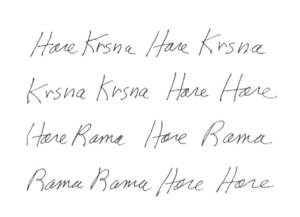 Hare Krsna Hare Krsna
Krsna Krsna Hare Hare
Hare Rama Hare Rama
Rama Rama Hare Hare